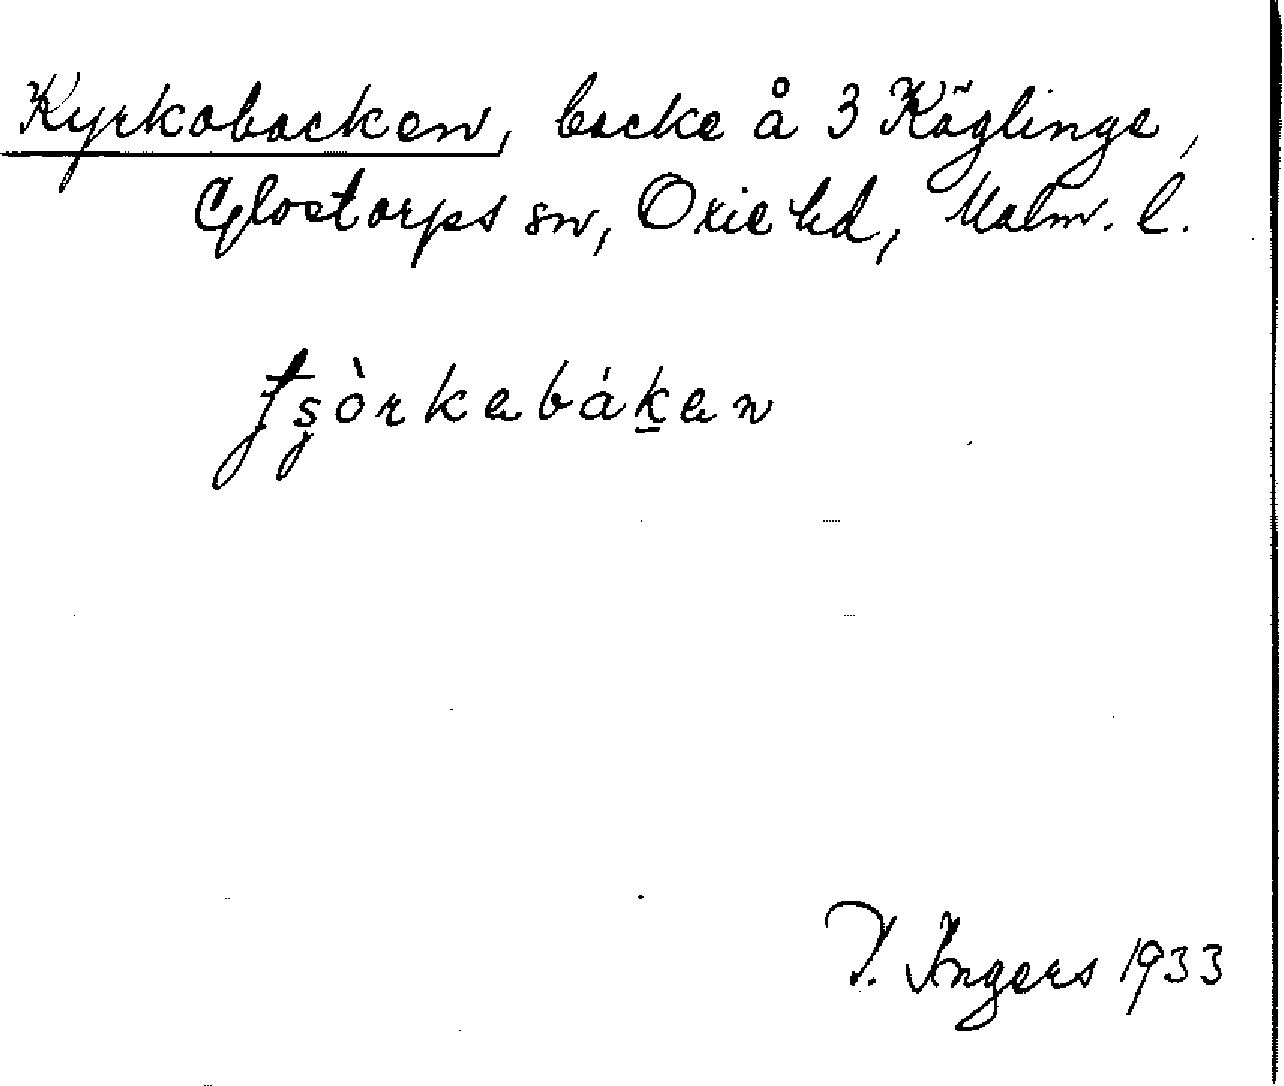 Kyrkobacken, backe å 3 Käglinge,
Glostorps sn, Oxie hd, Malm. l.
tʂòrkabáḵan
I. Ingers 1933